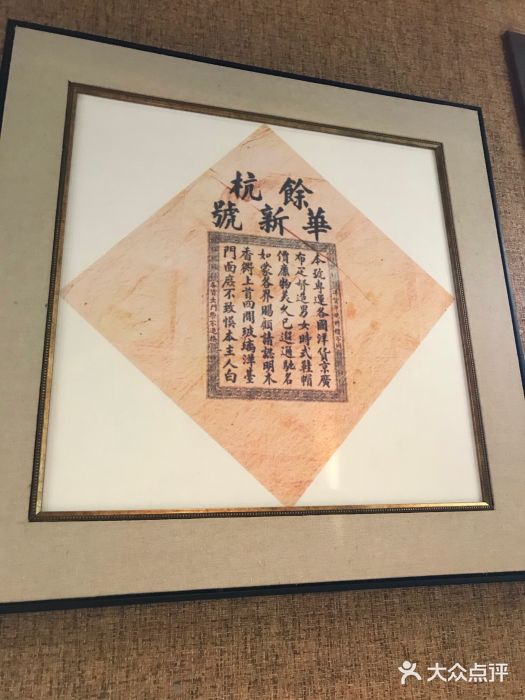 餘杭
華新號
本號專運各國洋貨京廣
布疋督造男女時式鞋帽
價廉物美久已遐邇馳名
如蒙各界賜顧請認明木
香衖上首四間玻璃洋臺
門面庶不致悞本主人白
各貨出門概不退換
大众点评